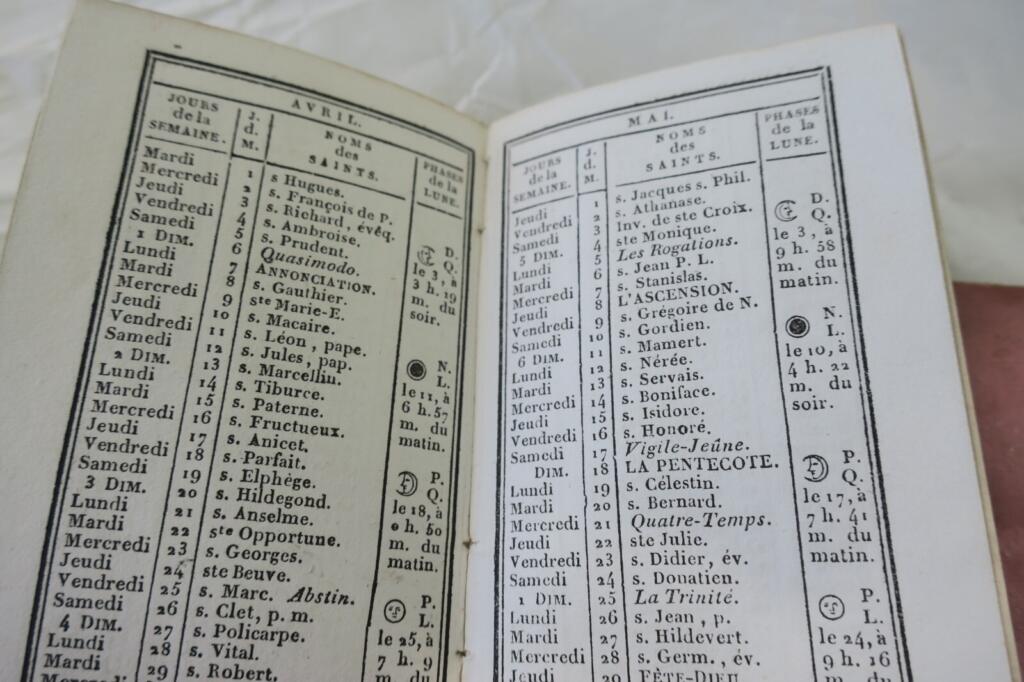 AVRIL.
JOURS de la SEMAINE.
J. d. M.
NOMS des SAINTS.
PHASES de la LUNE.
Mardi 1 s Hugues.
Mercredi 2 s. François de P.
Jeudi 3 s. Richard, évêq.
Vendredi 4 s. Ambroise.
Samedi 5 s. Prudent.
1 DIM. 6 Quasimodo.
Lundi 7 ANNONCIATION.
Mardi 8 s. Gauthier.
Mercredi 9 ste Marie-E.
Jeudi 10 s. Macaire.
Vendredi 11 s. Léon, pape.
Samedi 12 s. Jules, pap.
2 DIM. 13 s. Marcelliu.
Lundi 14 s. Tiburce.
Mardi 15 s. Paterne.
Mercredi 16 s. Fructueux.
Jeudi 17 s. Anicet.
Vendredi 18 s. Parfait.
Samedi 19 s. Elphège.
3 DIM. 20 s. Hildegond.
Lundi 21 s. Anselme.
Mardi 22 ste Opportune.
Mercredi 23 s. Georges.
Jeudi 24 ste Beuve.
Vendredi 25 s. Marc. Abstin.
Samedi 26 s. Clet, p. m.
4 DIM. 27 s. Policarpe.
Lundi 28 s. Vital.
Mardi 29 s. Robert.
Mercredi
D.
Q.
le 3, à
3 h. 19
m. du
soir.
N.
L.
le 11, à
6 h. 57
m. du
matin.
P.
Q.
le 18, à
0 h. 50
m. du
matin.
P.
L.
le 25, à
7 h. 9
MAI.
JOURS de la SEMAINE.
J. d. M.
NOMS des SAINTS.
PHASES de la LUNE.
Jeudi 1 s. Jacques s. Phil.
Vendredi 2 s. Athanase.
Samedi 3 Inv. de ste Croix.
5 DIM. 4 ste Monique.
Lundi 5 Les Rogations.
Mardi 6 s. Jean P. L.
Mercredi 7 s. Stanislas.
Jeudi 8 L'ASCENSION.
Vendredi 9 s. Grégoire de N.
Samedi 10 s. Gordien.
6 DIM. 11 s. Mamert.
Lundi 12 s. Nérée.
Mardi 13 s. Servais.
Mercredi 14 s. Boniface.
Jeudi 15 s. Isidore.
Vendredi 16 s. Honoré.
Samedi 17 Vigile-Jeûne.
DIM. 18 LA PENTECOTE.
Lundi 19 s. Célestin.
Mardi 20 s. Bernard.
Mercredi 21 Quatre-Temps.
Jeudi 22 ste Julie.
Vendredi 23 s. Didier, év.
Samedi 24 s. Donatien.
1 DIM. 25 La Trinité.
Lundi 26 s. Jean, p.
Mardi 27 s. Hildevert.
Mercredi 28 s. Germ., év.
Jeudi 29 FÊTE-DIEU
D.
Q.
le 3, à
9 h. 58
m. du
matin.
N.
L.
le 10, à
4 h. 22
m. du
soir.
P.
Q.
le 17, à
7 h. 41
m. du
matin.
P.
L.
le 24, à
9 h. 16
m. du